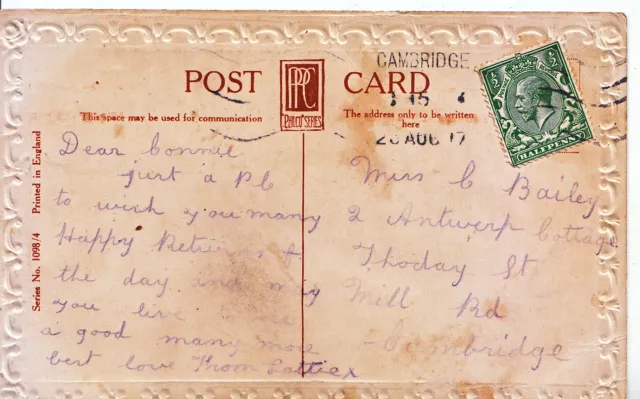 POST CARD
This space may be used for communication
The address only to be written
here
PPC
PHILCO SERIES
CAMBRIDGE
15
AUG 17
½ ½
HALFPENNY
Printed in England
Series No. 1098/4
Dear Connie
just a P C
to wish you many
Happy Returns of
the day and may
you live to see
a good many more
best love from
Miss C Bailey
2 Antwerp Cottage
Thoday St
Mill Rd
Cambridge